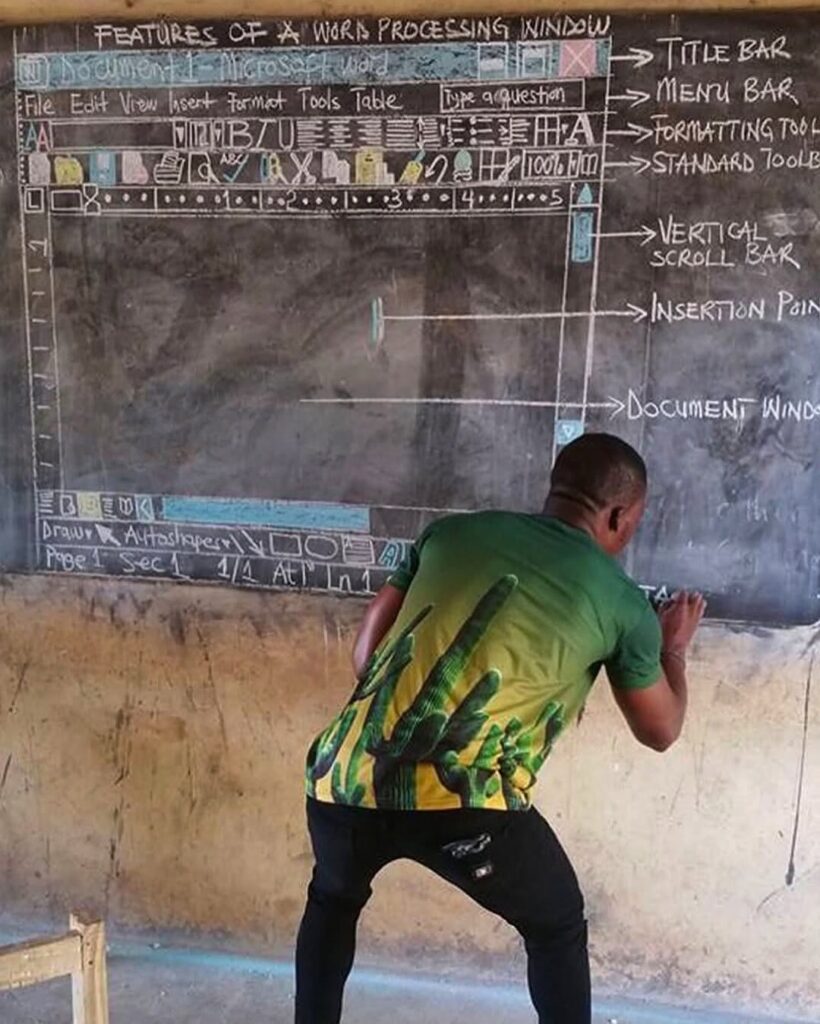 FEATURES OF A WORD PROCESSING WINDOW
Document 1 - Microsoft word
TITLE BAR
File Edit View Insert Format Tools Table
Type a question
MENU BAR
AA
B I U
A
FORMATTING TOOL
ABC
100%
STANDARD TOOLB
L
1 2 3 4 5
1
VERTICAL
SCROLL BAR
INSERTION POIN
DOCUMENT WIND
Draw Autoshapes
A
Page 1 Sec 1 1/1 At 1" Ln 1
TA